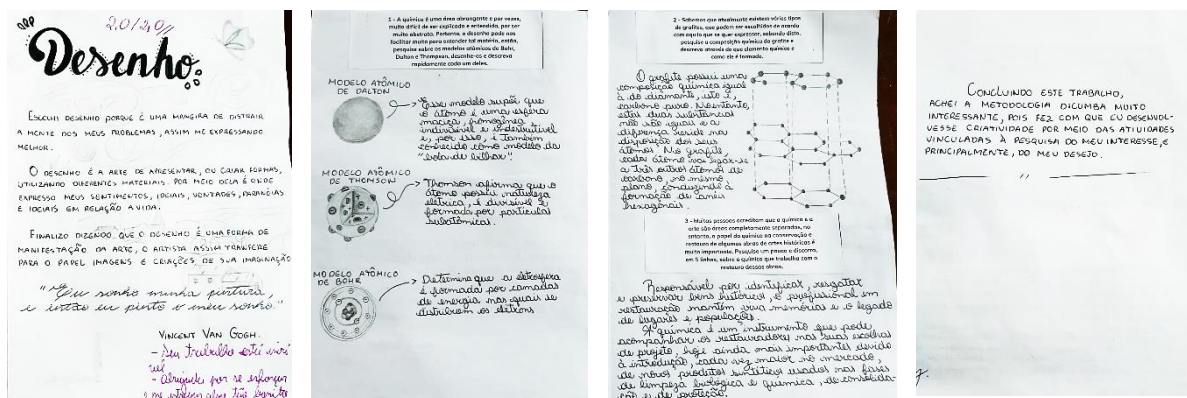 2,0/2,0
Desenho
Escolhi desenho porque é uma maneira de distrair
a mente dos meus problemas, assim me expressando
melhor.
O desenho é a arte de apresentar, ou criar formas,
utilizando diferentes materiais. Por meio dela é onde
expresso meus sentimentos, ideiais, vontades, paranóias
e ideiais em relação a vida.
Finalizo dizendo que o desenho é uma forma de
manifestação da arte, o artista assim tranfere
para o papel imagens e criações de sua imaginação
"Eu sonho minha pintura,
e então eu pinto o meu sonho."
Vincent Van Gogh.
- Seu trabalho está
- por se esforçar
1 - A química é uma área abrangente e por vezes,
muito difícil de ser explicada e entendida, por ser
muito abstrata. Portanto, o desenho pode nos
facilitar muito para entender tal matéria, então,
pesquise sobre os modelos atômicos de Bohr,
Dalton e Thompson, desenhe-os e descreva
rapidamente cada um deles.
Modelo atômico
de Dalton
Esse modelo supõe que
o átomo é uma esfera
maciça, homogênea
indivisível e indestrutível
e, por isso, é também
conhecido como modelo da
"bola de bilhar".
Modelo atômico
de Thomson
Thomson afirma que o
átomo possui natureza
elétrica, é divisível e
formada por partículas
subatômicas.
Modelo atômico
de Bohr
Determina que a eletrosfera
é formada por camadas
de energia nas quais se
distribuem os elétrons
2 - Sabemos que atualmente existem vários tipos
de grafites, que podem ser escolhidos de acordo
com aquilo que se quer expressar, sabendo disto,
pesquise a composição química da grafite e
descreva através de que elemento químico e
como ele é formado.
O grafite possui uma
composição química igual
à do diamante, isto é,
carbono puro. No entanto,
estas duas substâncias
não são iguais e a
diferença reside na
disposição dos seus
átomos. No grafite,
cada átomo vai ligar-se
a três outros átomos de
carbono, no mesmo
plano, conduzindo à
formação de anéis
hexagonais.
3 - Muitas pessoas acreditam que a química e a
arte são áreas completamente separadas, no
entanto, o papel da química na conservação e
restauro de algumas obras de artes históricas é
muito importante. Pesquise um pouco e discorra,
em 5 linhas, sobre a química que trabalha com o
restauro dessas obras.
Responsável por identificar, resgatar
e preservar bens históricos, o profissional em
restauração mantém viva memórias e o legado
de lugares e populações.
A química é um instrumento que pode
acompanhar os restauradores nas suas escolhas
de projeto, hoje ainda mais importantes devido
à introdução, cada vez maior no mercado,
de novos produtos sintéticos usados nas fases
de limpeza biológica e química, de consolida-
ção e de proteção.
Concluindo este trabalho,
achei a metodologia dicumba muito
interessante, pois fez com que eu desenvol-
vesse criatividade por meio das atividades
vinculadas à pesquisa do meu interesse, e
principalmente, do meu desejo.